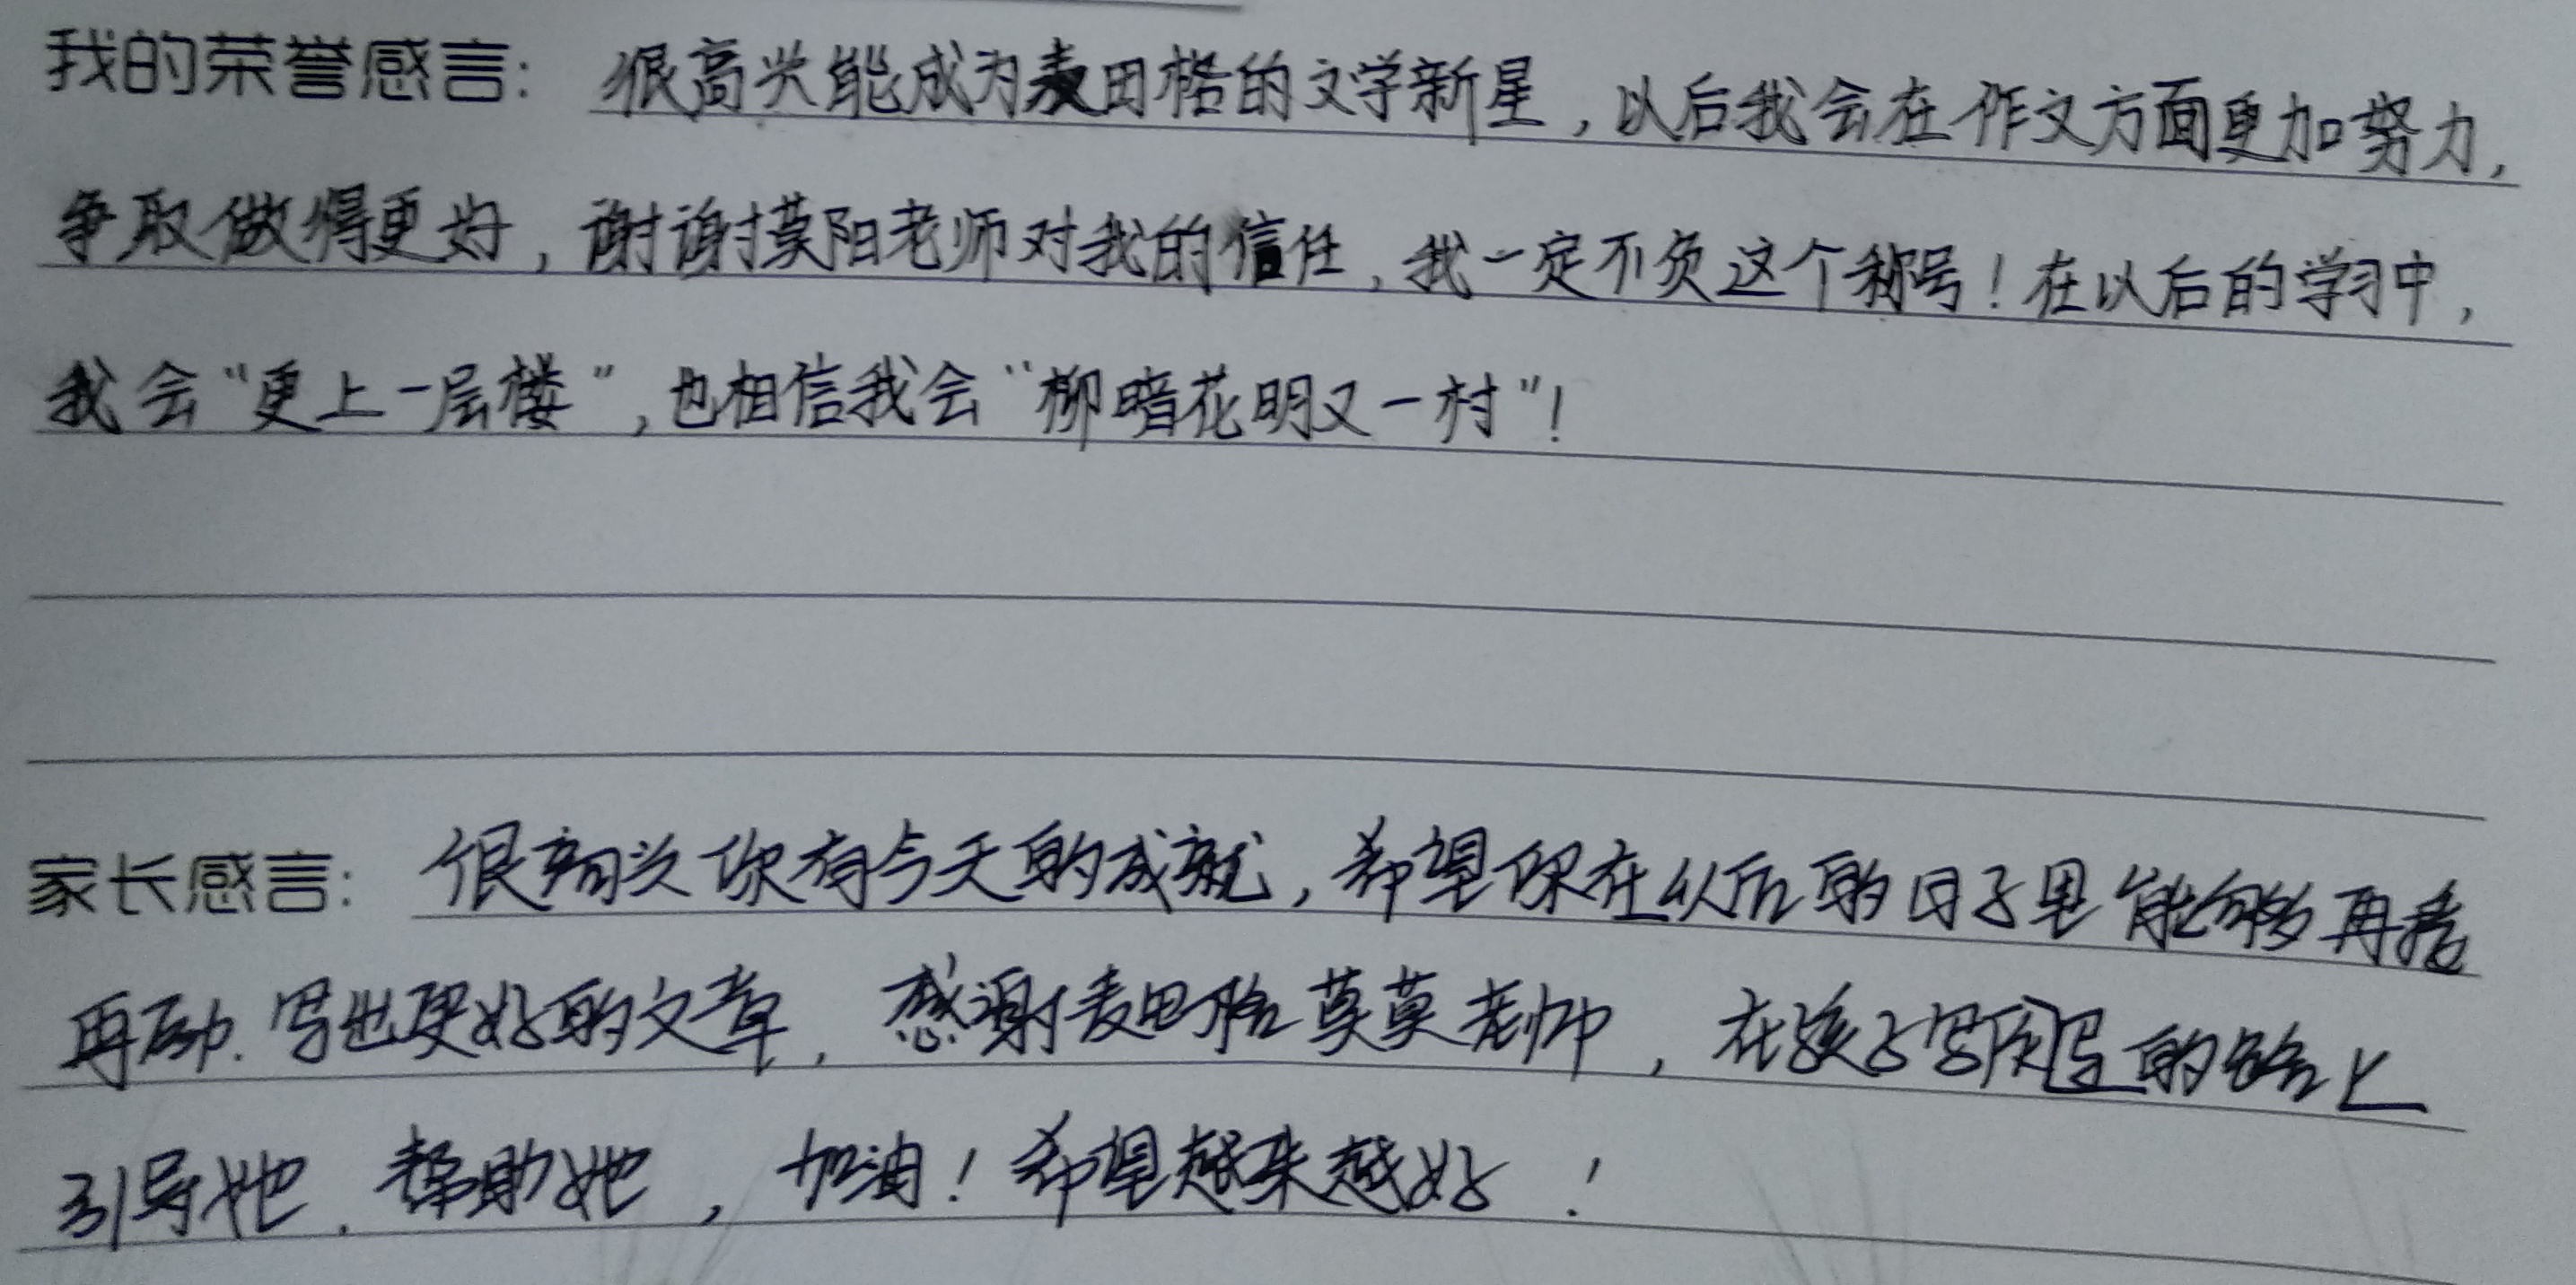 我的荣誉感言：很高兴能成为麦田格的文学新星，以后我会在作文方面更加努力，
争取做得更好，谢谢莫阳老师对我的信任，我一定不负这个称号！在以后的学习中，
我会“更上一层楼”，也相信我会“柳暗花明又一村”！
家长感言：很高兴你有今天的成就，希望你在以后的日子里能够再接
再励．写出更好的文章，感谢麦田格莫莫老师，在孩子写的路上
引导她，帮助她，加油！希望越来越好！